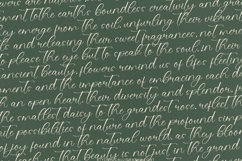 ment to the earth's boundless creativity and gra
y emerge from the soil, unfurling their vibran
ls and releasing their sweet fragrances, not mere
to please the eye but to speak to the soul. in their
ansient beauty, flowers remind us of life's fleetin
ments and the importance of embracing each d
h an open heart. their diversity and splendor, f
the smallest daisy to the grandest rose, reflect th
nite possibilities of nature and the profound comple
of joy found in the natural world. as they bloom
each us that beauty is not just in the grand